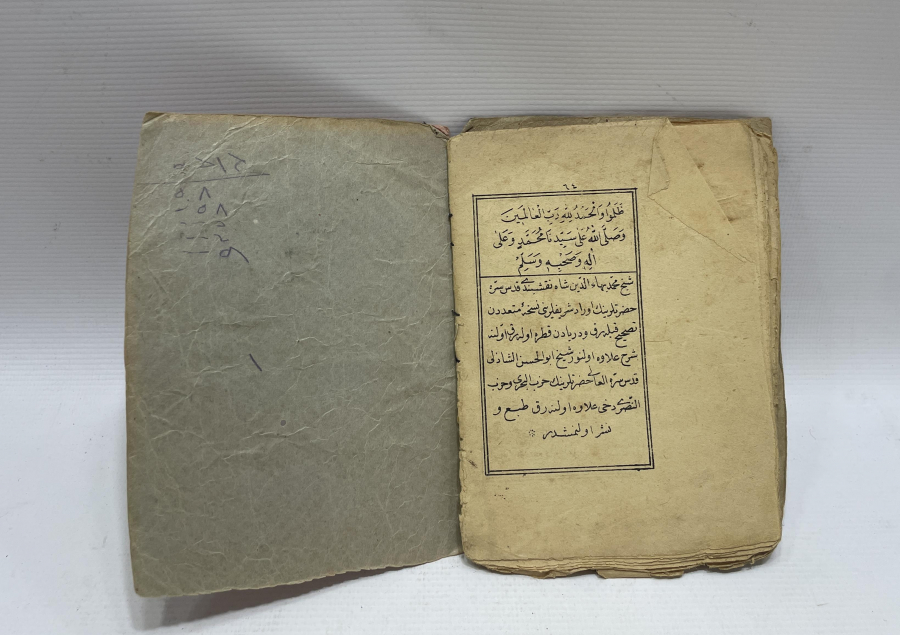 ٦٤
ظَلَمُوا وَالْحَمْدُ لِلّٰهِ رَبِّ الْعَالَمِينَ
وَصَلَّى اللّٰهُ عَلَى سَيِّدِنَا مُحَمَّدٍ وَعَلَى
اٰلِهِ وَصَحْبِهِ وَسَلِّمْ
شيخ محمد بهاء الدين شاه نقشبندى قدس سره
حضرتلرينك اوراد شريفلرينى نسخهٔ متعددن
تصحيح قيله رق ودريادن قطره اوله رق اولنه
شرح علاوه اولنور شيخ ابو الحسن الشاذلى
قدس سره العالى حضرتلرينك حزب البحرى وحزب
النصرى دخى علاوه اولنه رق طبع و
نشر اولنمشدر